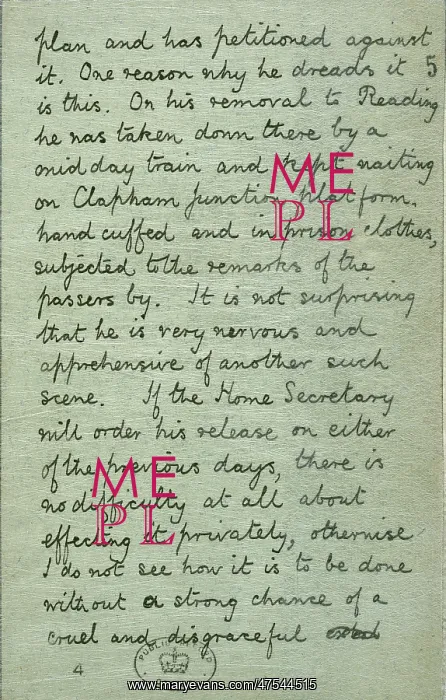 plan and has petitioned against
it. One reason why he dreads it 5
is this. On his removal to Reading
he was taken down there by a
mid day train and kept waiting
on Clapham Junction platform,
handcuffed and in prison clothes,
subjected to the remarks of the
passers by. It is not surprising
that he is very nervous and
apprehensive of another such
scene. If the Home Secretary
will order his release on either
of the previous days, there is
no difficulty at all about
effecting it privately, otherwise
I do not see how it is to be done
without a strong chance of a
cruel and disgraceful
4
ME
PL
ME
PL
www.maryevans.com/47544515